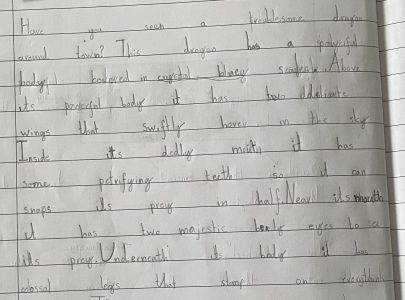 Have you seen a troublesome dragon
around town? This dragon has a powerful
body covered in crystal bluey scales. Above
its powerful body it has two delicate
wings that swiftly hover in the sky
Inside its dedly mouth it has
some petrifying teeth so it can
snaps its prey in half. Near its mouth
it has two majestic eyes to see
its prey. Underneath its body it has
colossal legs that stomp on everything